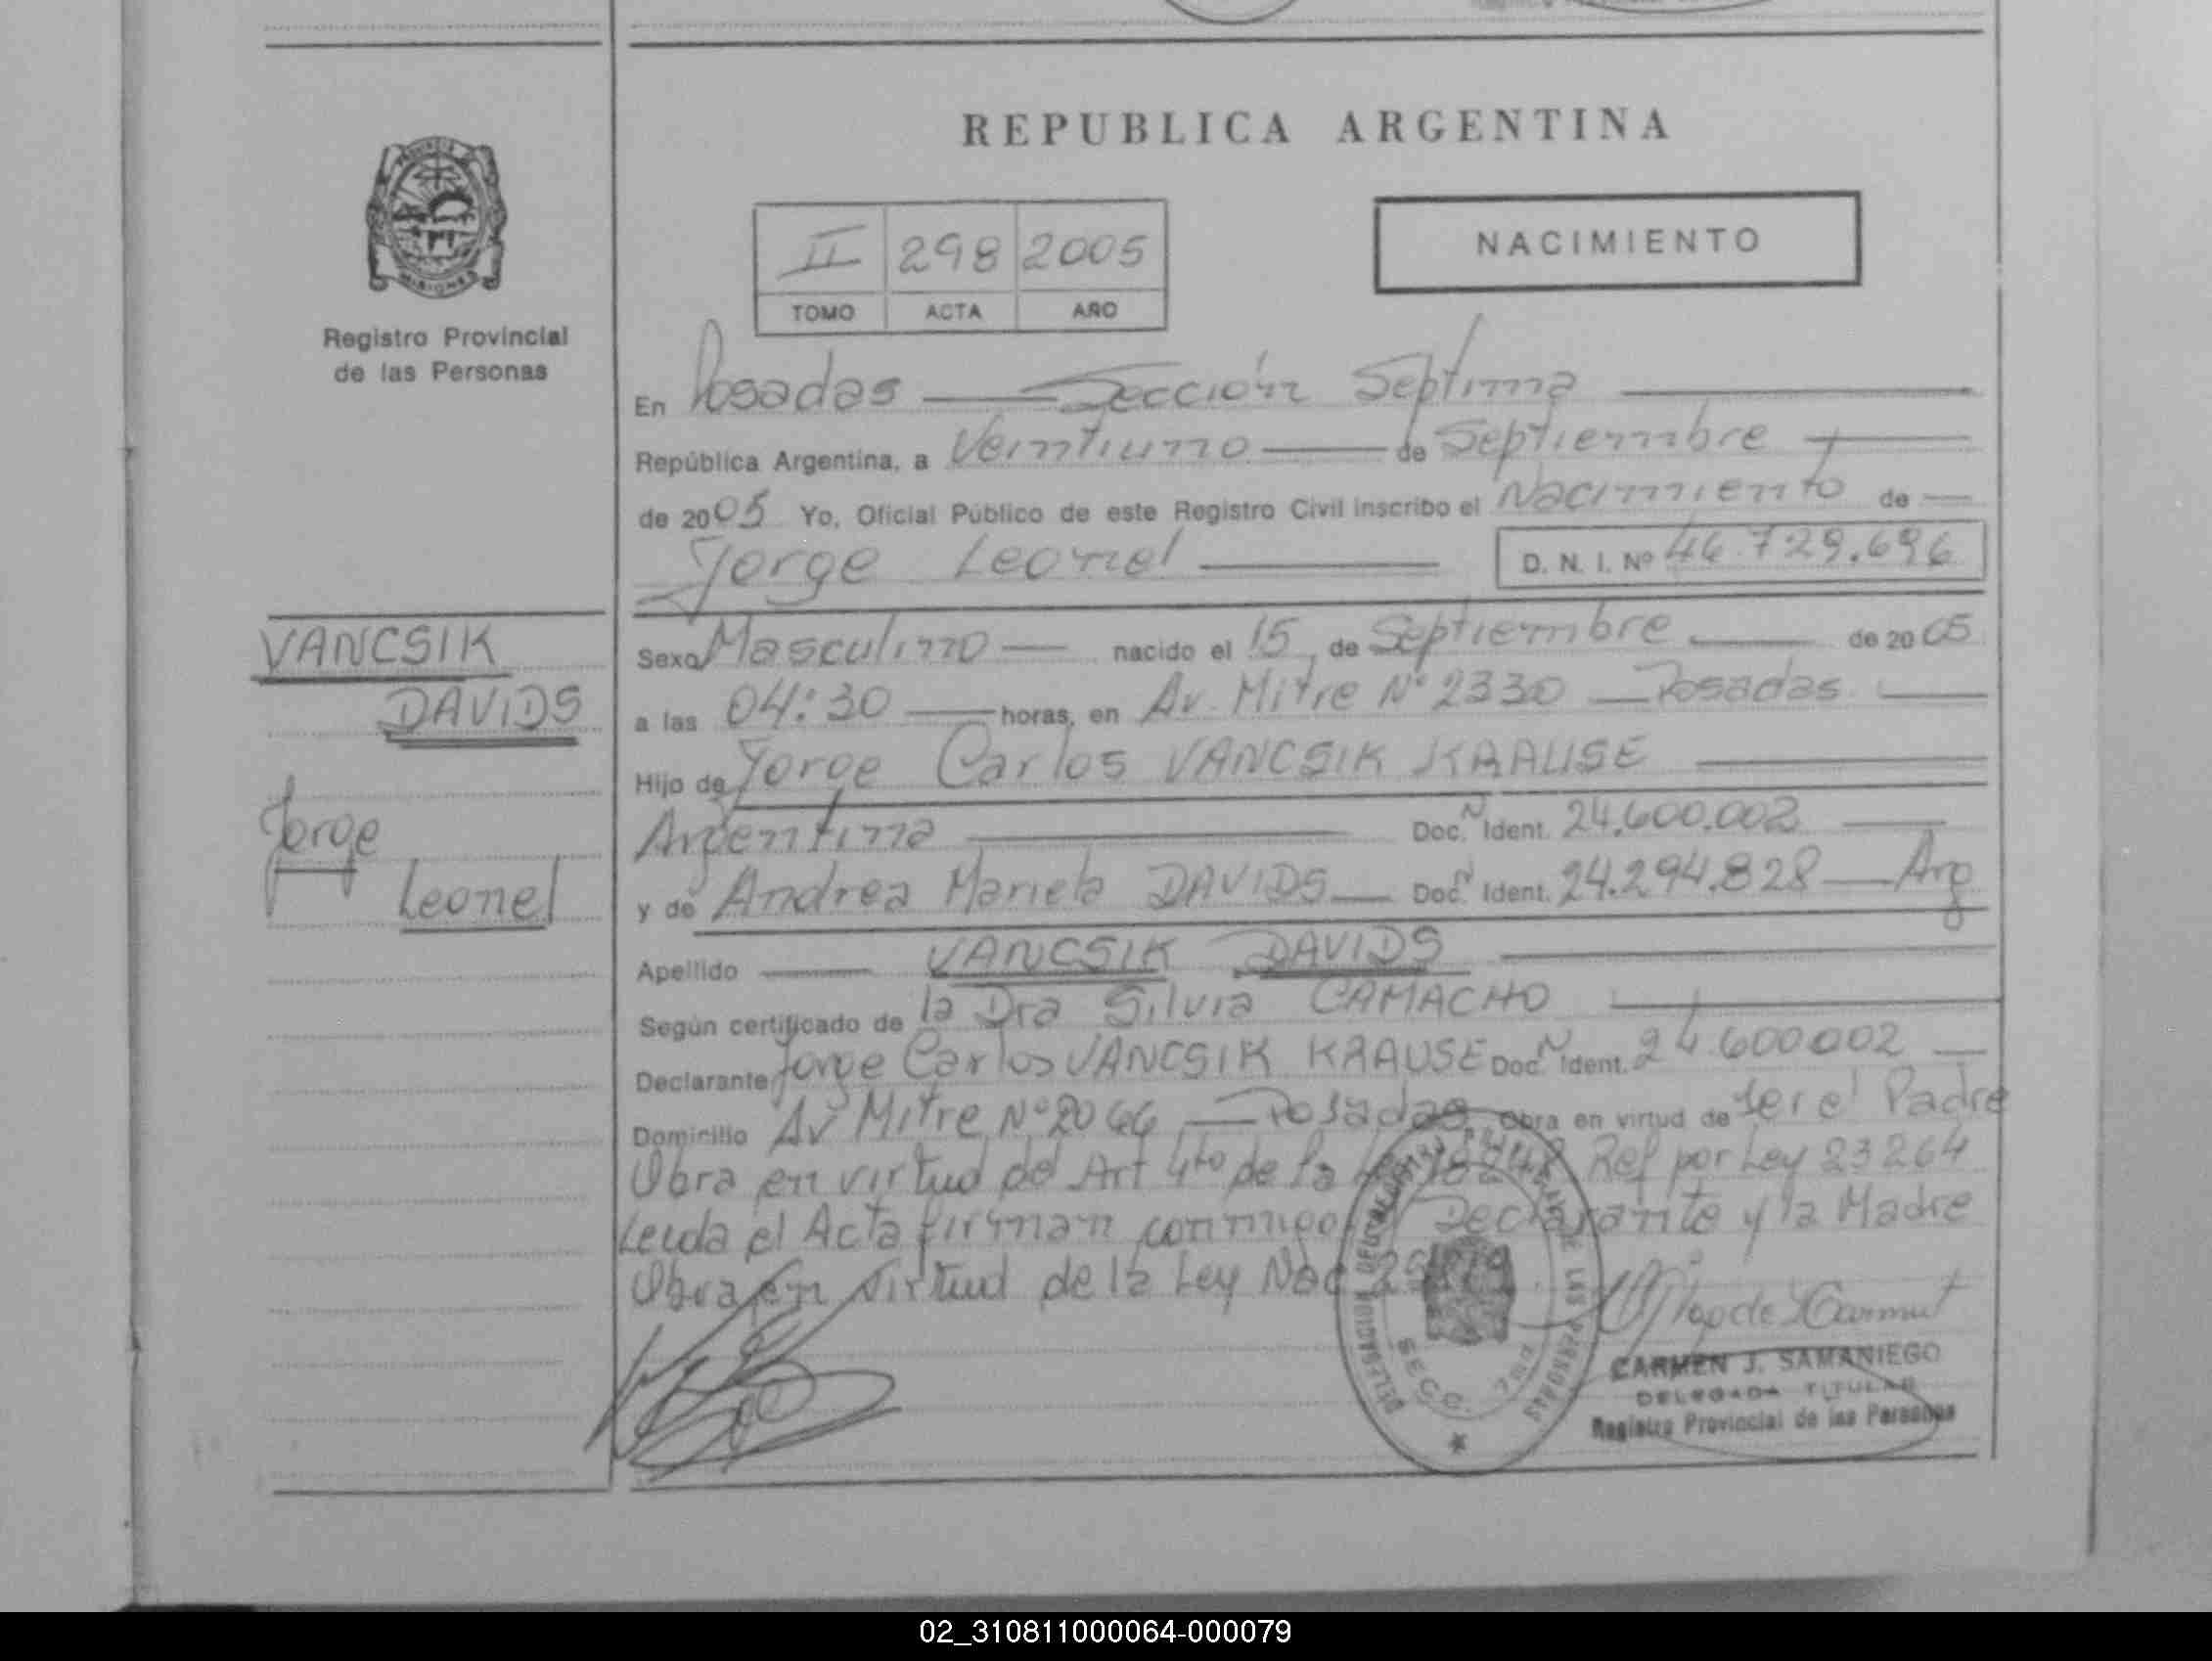 REPUBLICA ARGENTINA
PROVINCIA DE MISIONES
Registro Provincial
de las Personas
II 298 2005
TOMO ACTA AÑO
NACIMIENTO
En Posadas Sección Septima
República Argentina, a Veintiuno de Septiembre
de 2005 Yo, Oficial Público de este Registro Civil inscribo el Nacimiento de
Jorge Leonel D. N. I. Nº 46.729.696
VANCSIK
DAVIDS
Jorge
Leonel
Sexo Masculino nacido el 15 de Septiembre de 2005
a las 04:30 horas, en Av. Mitre Nº 2330 Posadas
Hijo de Jorge Carlos VANCSIK KRAUSE
Argentina Doc. N Ident. 24.600.002
y de Andrea Mariela DAVIDS Doc. N Ident. 24.294.828 Arg
Apellido VANCSIK DAVIDS
Según certificado de la Dra Silvia CAMACHO
Declarante Jorge Carlos VANCSIK KRAUSE Doc. N Ident. 24.600002
Domicilio Av Mitre Nº 2066 Posadas Obra en virtud de ser el Padre
Obra en virtud del Art 4to de la Ref por Ley 23264
Leida el Acta firman conmigo el Declarante y la Madre
Obra en virtud de la Ley Nac
DELEGACION DEL REGISTRO PROVINCIAL DE LAS PERSONAS
SECC. 7ma
CARMEN J. SAMANIEGO
DELEGADA TITULAR
Registro Provincial de las Personas
02_310811000064-000079